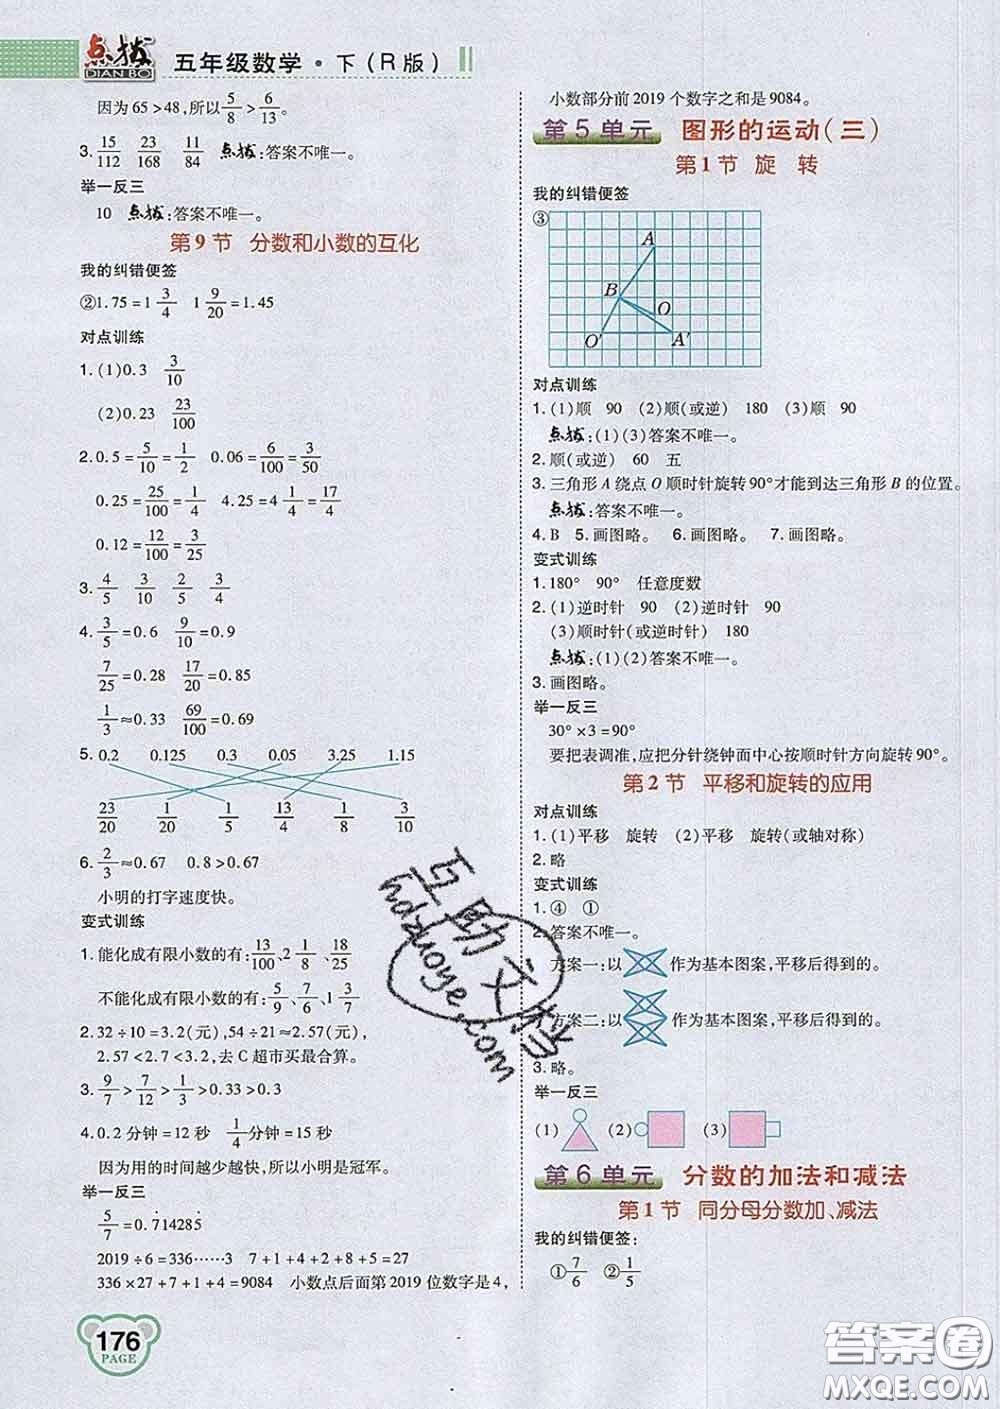 点拔
DIAN BO
五年级数学·下(R版)
因为65>48,所以5/8>6/13。
3. 15/112 23/168 11/84 点拔:答案不唯一。
举一反三
10 点拔:答案不唯一。
第9节 分数和小数的互化
我的纠错便签
②1.75=1 3/4 1 9/20=1.45
对点训练
1.(1)0.3 3/10
(2)0.23 23/100
2.0.5=5/10=1/2 0.06=6/100=3/50
0.25=25/100=1/4 4.25=4 1/4=17/4
0.12=12/100=3/25
3. 4/5 3/10 2/5 3/4
4. 3/5=0.6 9/10=0.9
7/25=0.28 17/20=0.85
1/3≈0.33 69/100=0.69
5. 0.2 0.125 0.3 0.05 3.25 1.15
23/20 1/20 1/5 13/4 1/8 3/10
6. 2/3≈0.67 0.8>0.67
小明的打字速度快。
变式训练
1.能化成有限小数的有:13/100、2 1/8、18/25
不能化成有限小数的有:5/9、3/7、1 3/7
2.32÷10=3.2(元),54÷21≈2.57(元),
2.57<2.7<3.2,去C超市买最合算。
3. 9/7>7/12>1/3>0.33>0.3
4.0.2分钟=12秒 1/4分钟=15秒
因为用的时间越少越快,所以小明是冠军。
举一反三
5/7=0.7̇14285̇
2019÷6=336……3 7+1+4+2+8+5=27
336×27+7+1+4=9084 小数点后面第2019位数字是4,
176
PAGE
小数部分前2019个数字之和是9084。
第5单元 图形的运动(三)
第1节 旋 转
我的纠错便签
③
A
B
O
O′ A′
对点训练
1.(1)顺 90 (2)顺(或逆) 180 (3)顺 90
点拔:(1)(3)答案不唯一。
2.顺(或逆) 60 五
3.三角形A绕点O顺时针旋转90°才能到达三角形B的位置。
点拔:答案不唯一。
4.B 5.画图略。 6.画图略。 7.画图略。
变式训练
1.180° 90° 任意度数
2.(1)逆时针 90 (2)逆时针 90
(3)顺时针(或逆时针) 180
点拔:(1)(2)答案不唯一。
3.画图略。
举一反三
30°×3=90°
要把表调准,应把分针绕钟面中心按顺时针方向旋转90°。
第2节 平移和旋转的应用
对点训练
1.(1)平移 旋转 (2)平移 旋转(或轴对称)
2.略
变式训练
1.④ ①
2.答案不唯一。
方案一:以 作为基本图案,平移后得到的。
方案二:以 作为基本图案,平移后得到的。
3.略。
举一反三
(1) (2) (3)
第6单元 分数的加法和减法
第1节 同分母分数加、减法
我的纠错便签:
①7/6 ②1/5
互助文档
hdzuoye.com
答案圈
MXQE.COM